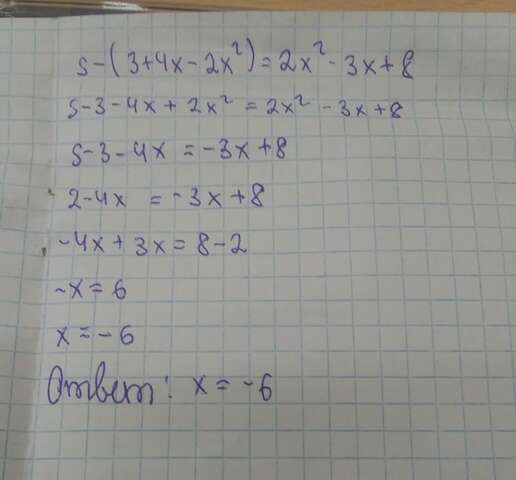 5-(3+4x-2x²)=2x²-3x+8
5-3-4x+2x²=2x²-3x+8
5-3-4x=-3x+8
2-4x=-3x+8
-4x+3x=8-2
-x=6
x=-6
Ответ: x=-6